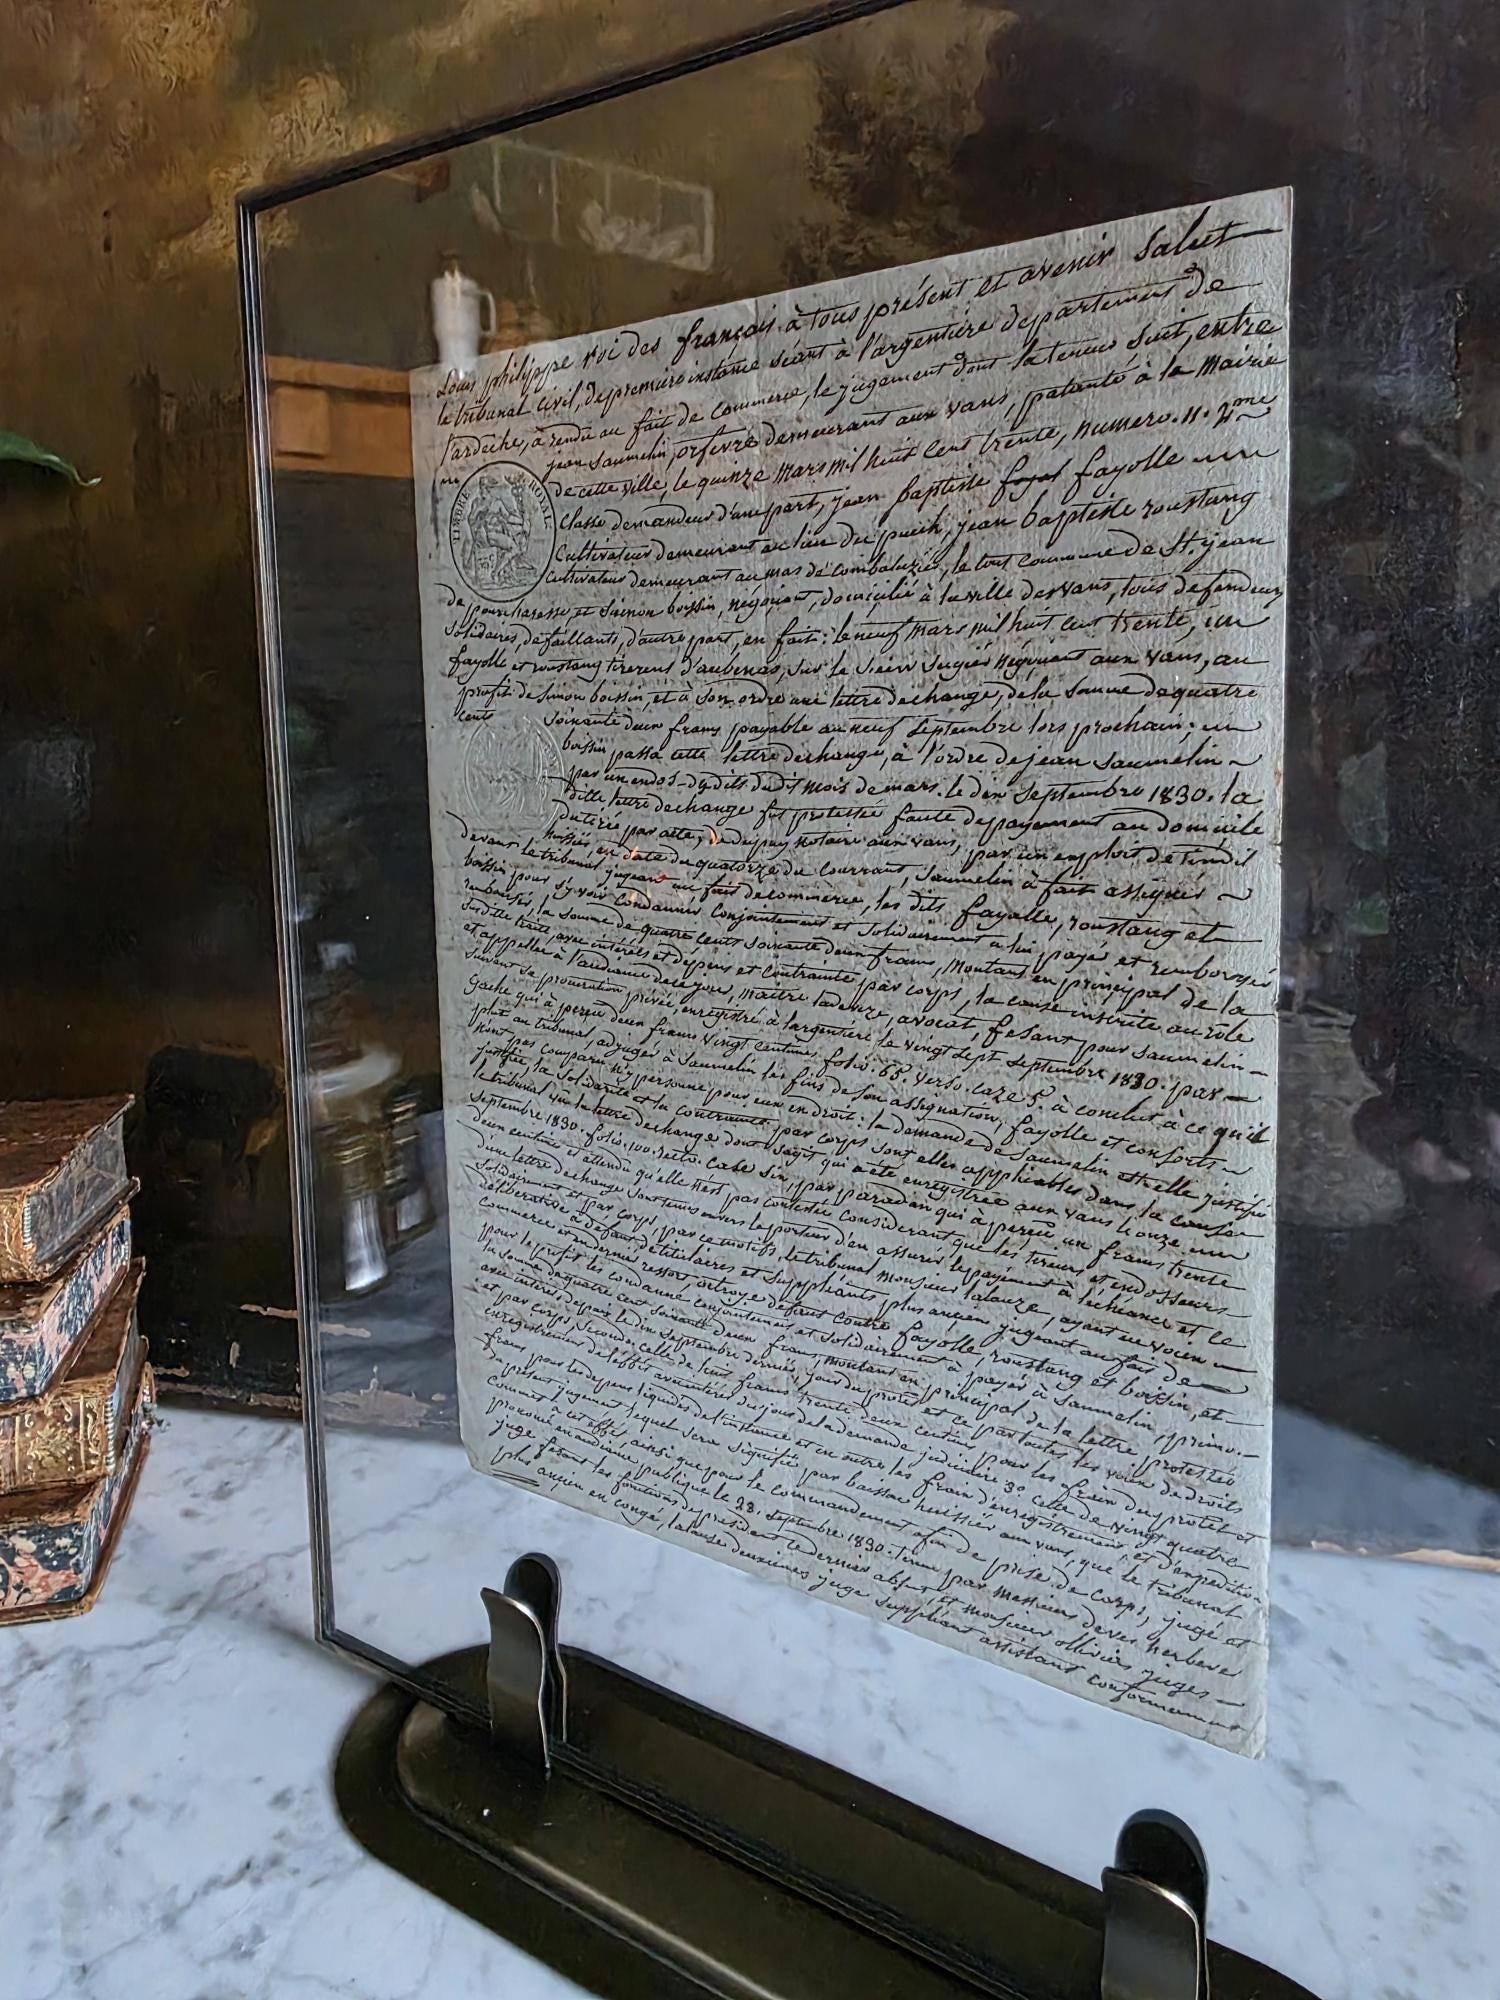 Louis philippe roi des français à tous présent et avenir salut
le tribunal civil, de premiere instance séant à l'argentière departement de
l'ardeche, à rendu au fait de commerce, le jugement dont la teneur suit, entre
jean saumelin, orfevre demeurant aux vans, patanté à la Mairie
de cette ville, le quinze mars mil huit cent trente, numero. 11. 2me
TIMBRE ROYAL
classe demandeur d'une part, jean baptiste fayolle
cultivateur demeurant au lieu du puech, jean baptiste roustang
cultivateur demeurant au mas de combaluzier, le tout commune de St. jean
de pourcharesse, et simon boissin, négociant, domicilié à la ville des vans, tous defendeurs
solidaires, defaillants, d'autre part, en fait: le neuf mars mil huit cent trente,
fayolle et roustang tirerent d'aubenas, sur le sieur négociant aux vans, au
profit de simon boissin, et à son ordre une lettre de change, de la somme de quatre
cents soixante deux francs payable au neuf septembre lors prochain;
boissin passa cette lettre de change, à l'ordre de jean saumelin
par un endos du dit mois de mars. le dix septembre 1830. la
ditte lettre de change fut protestée faute de payement au domicile
du tiré par acte, de notaire aux vans, par un exploit de
huissier, en date du quatorze du courrant, saumelin à fait assigner
devant le tribunal jugeant au fait de commerce, les dits fayolle, roustang et
boissin pour s'y voir condanner conjointement et solidairement à lui payer et rembourser
la somme de quatre cents soixante deux francs, montant en principal de la
susditte traite, avec intérêts et dépens et contrainte par corps, la cause inscrite au role
et appellée à l'audiance de ce jour, maître avocat, fesant pour saumelin
suivant sa procuration privée, enregistré à largentière le vingt sept septembre 1830. par
gache qui à perçu deux francs vingt centimes folio. 65. verso. caze 5. à conclut à ce qu'il
plut au tribunal, adjuger à saumelin les fins de son assignation, fayolle et consorts
n'ont pas comparu ny personne pour eux en droit: la demande de saumelin est elle justifiée
la solidarité et la contrainte par corps sont elles applicables dans la cause
le tribunal vu la lettre de change dont sagit qui a été enregistrée aux vans le onze
septembre 1830. folio. 100. recto. case six, par qui à perçu un francs trente
deux centimes et attendu qu'elle n'est pas contestée considerant que les tireurs et endosseurs
d'une lettre de change sont tenus envers le porteur d'en assurer le payement à l'échéance et ce
solidairement et par corps, par ce motifs, le tribunal monsieur lalauze, ayant eu voix
deliberative à défaut de titulaires et suppléants plus ancien jugeant au fait de
commerce en dernier ressort, octroye defaut contre fayolle, roustang et boissin, et
pour le profit les condanne conjointement et solidairement à payer à saumelin, primo.
la somme de quatre cent soixante deux francs, montant en principal de la lettre protestée
avec intérêts depuis le dix septembre dernier, jour du protet et ce par toutes les voix de droits
et par corps, secondo celle de huit francs trente deux centimes pour les frais du protet et
enregistrement de l'effet avec intérêts du jour de la demande judiciaire 3o celle de vingt quatre
francs pour les depens liquidés de l'instance et en outre les frais d'enregistrement et d'expedition
du présent jugement lequel sera signifié par huissier aux vans, que le tribunal
commet à cet effet, ainsi que pour le commandement afin de prise de corps, jugé et
prononcé en audience publique le 28. septembre 1830. tenue par messieurs
juge fesant les fonctions de president le dernier absent, et monsieur ollivier juges
plus ancien en congé, lalauze deuxieme juge suppléant assistant conformement